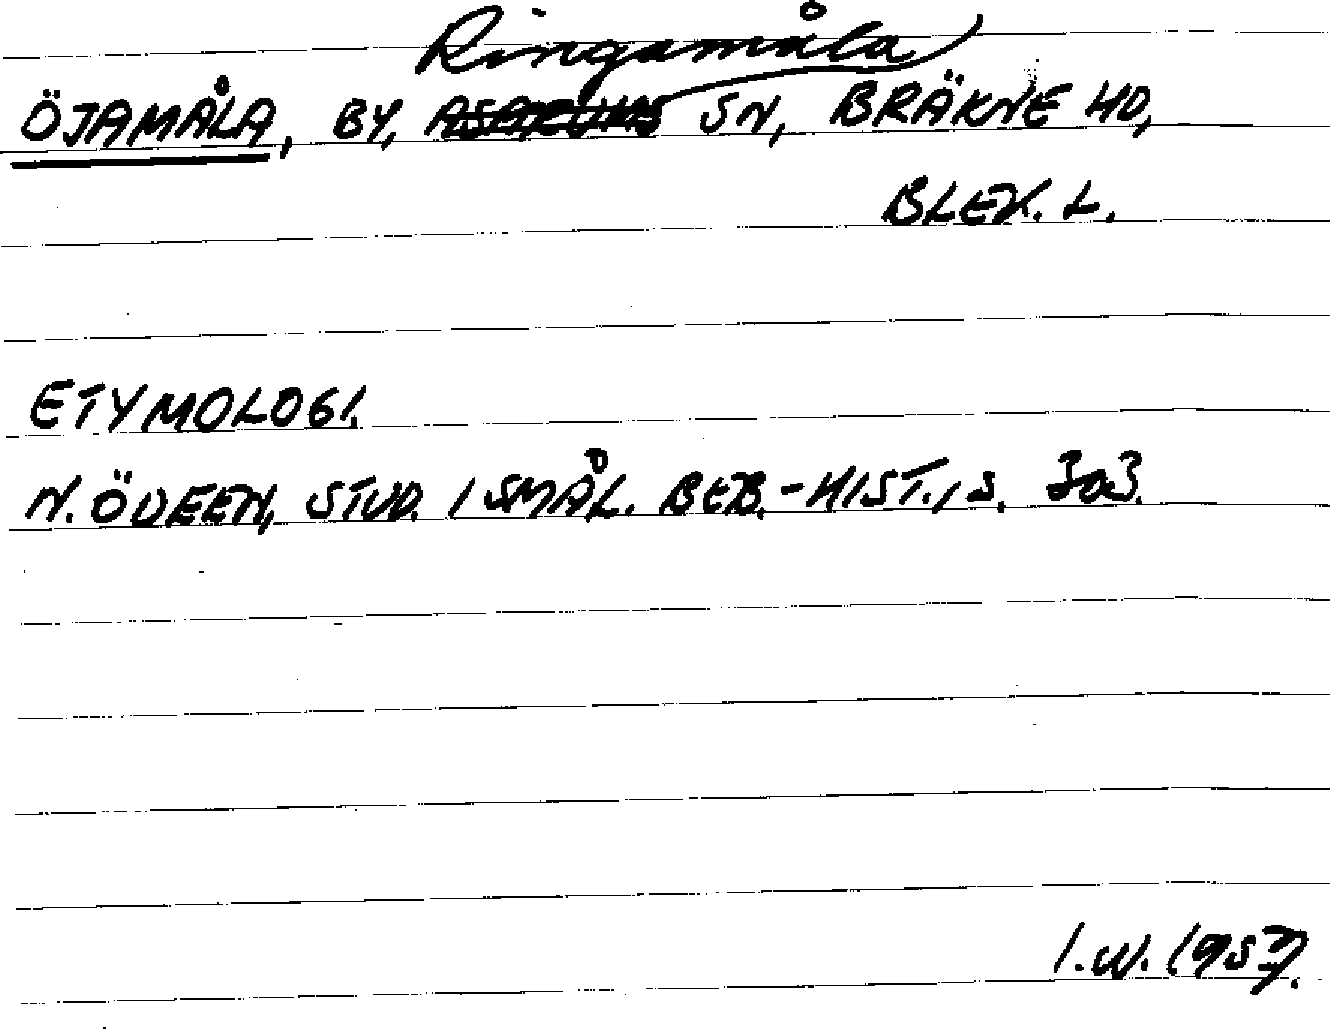 Ringamåla
ÖJAMÅLA, BY, ASARUMS SN, BRÄKNE HD,
BLEK. L.
ETYMOLOGI.
N. ÖDEEN, STUD. I SMÅL. BEB.-HIST., S. 303.
I.W. 1957.